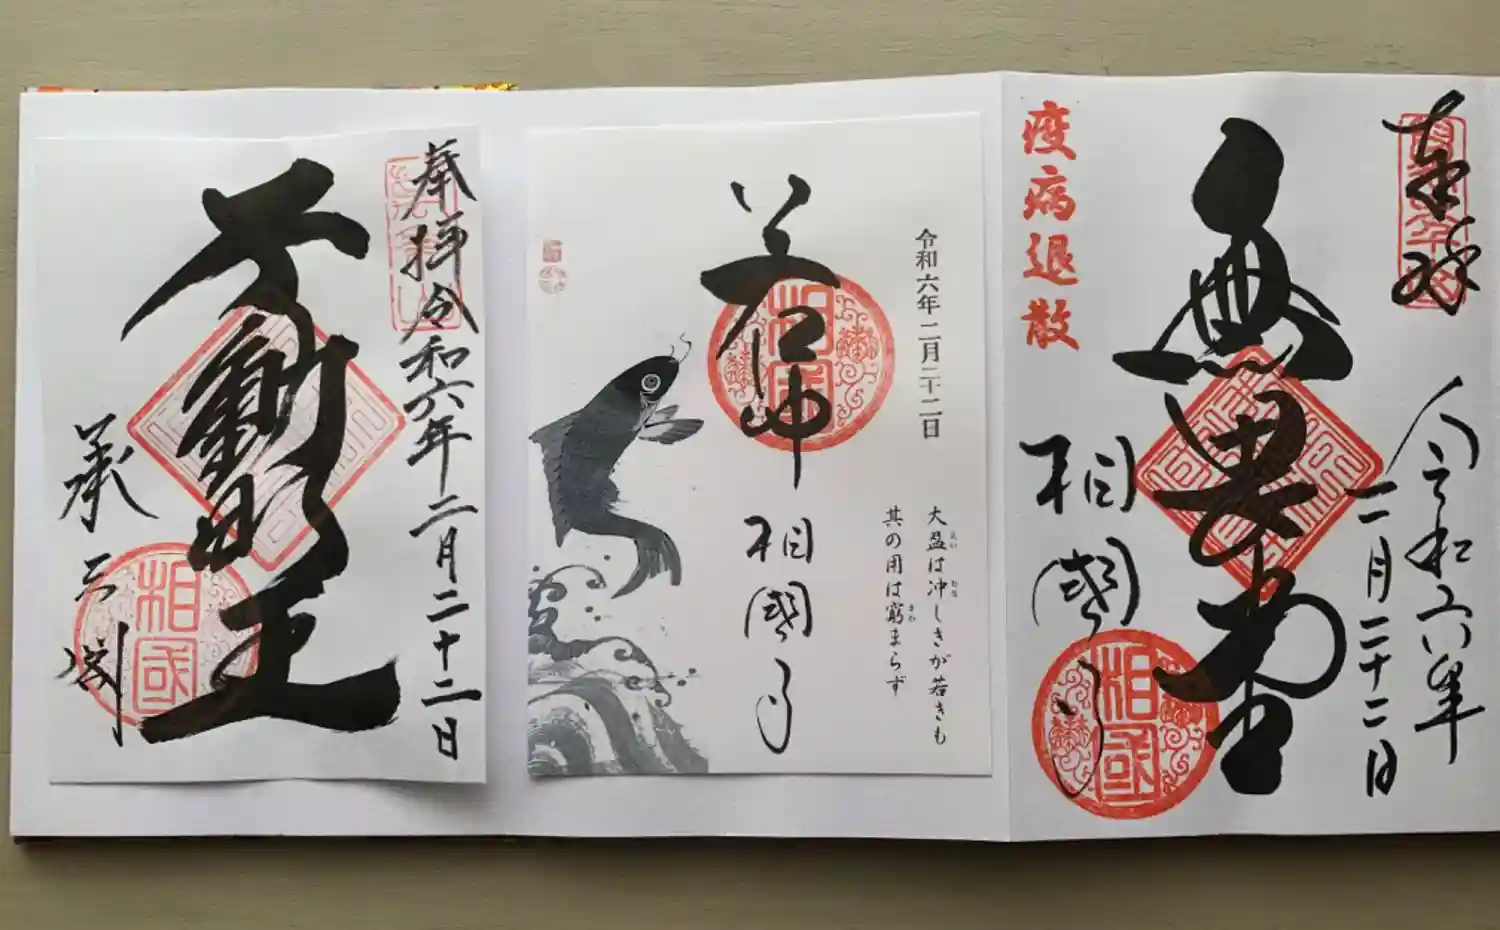 奉拝
令和六年
二月二十二日
無畏堂
疫病退散
相國寺
相國
令和六年二月二十二日
若冲
相國
相國寺
大盈は冲しきが若きも
其の用は窮まらず
奉拝令和六年二月二十二日
不動明王
承天閣
相國